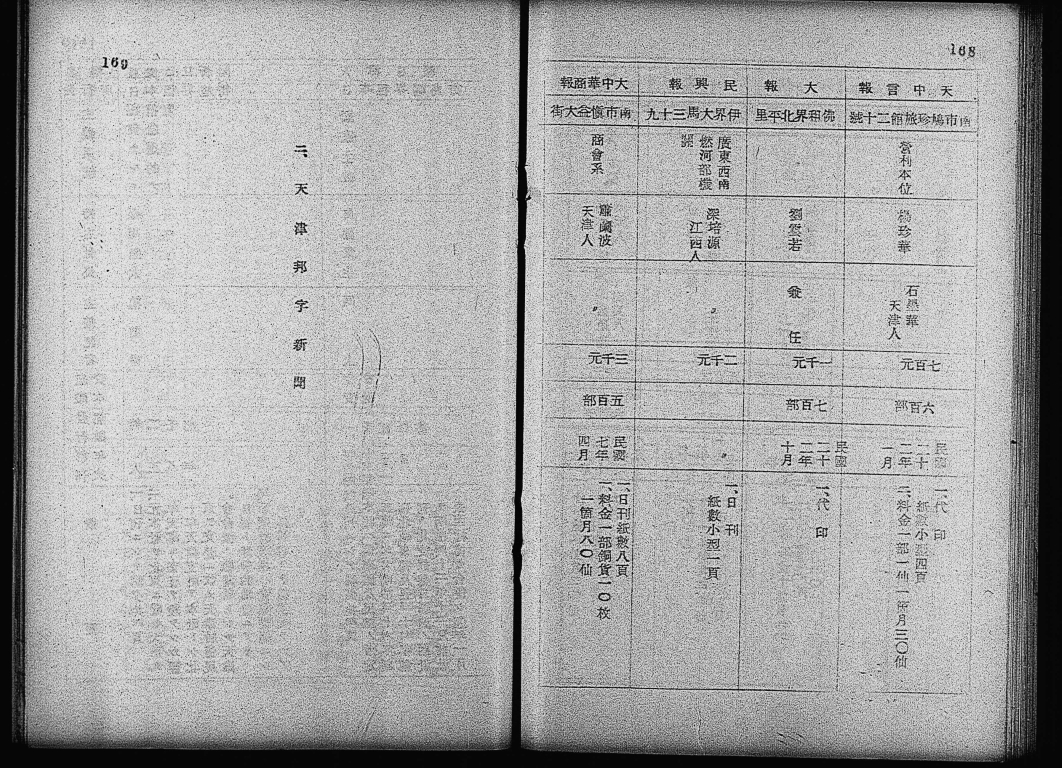 168
天中言報
南市鳩珍旅館二十號
營利本位
楊珍華
石墨華
天津人
七百元
六百部
民國
二十
二年
一月
一、代印
紙數小型四頁
二、料金一部一仙一箇月三〇仙
大報
佛租界北平里
劉雲若
兼任
一千元
七百部
民國
二十
二年
十月
一、代印
民興報
伊界大馬三十九
廣東西南
深培源
江西人
〃
二千元
〃
一、日刊
紙數小型一頁
大中華商報
南市慎益大街
商會系
蕭蘭波
天津人
〃
三千元
五百部
民國
七年
四月
一、日刊紙數八頁
一、料金一部銅貨一〇枚
一箇月八〇仙
169
二、天津邦字新聞